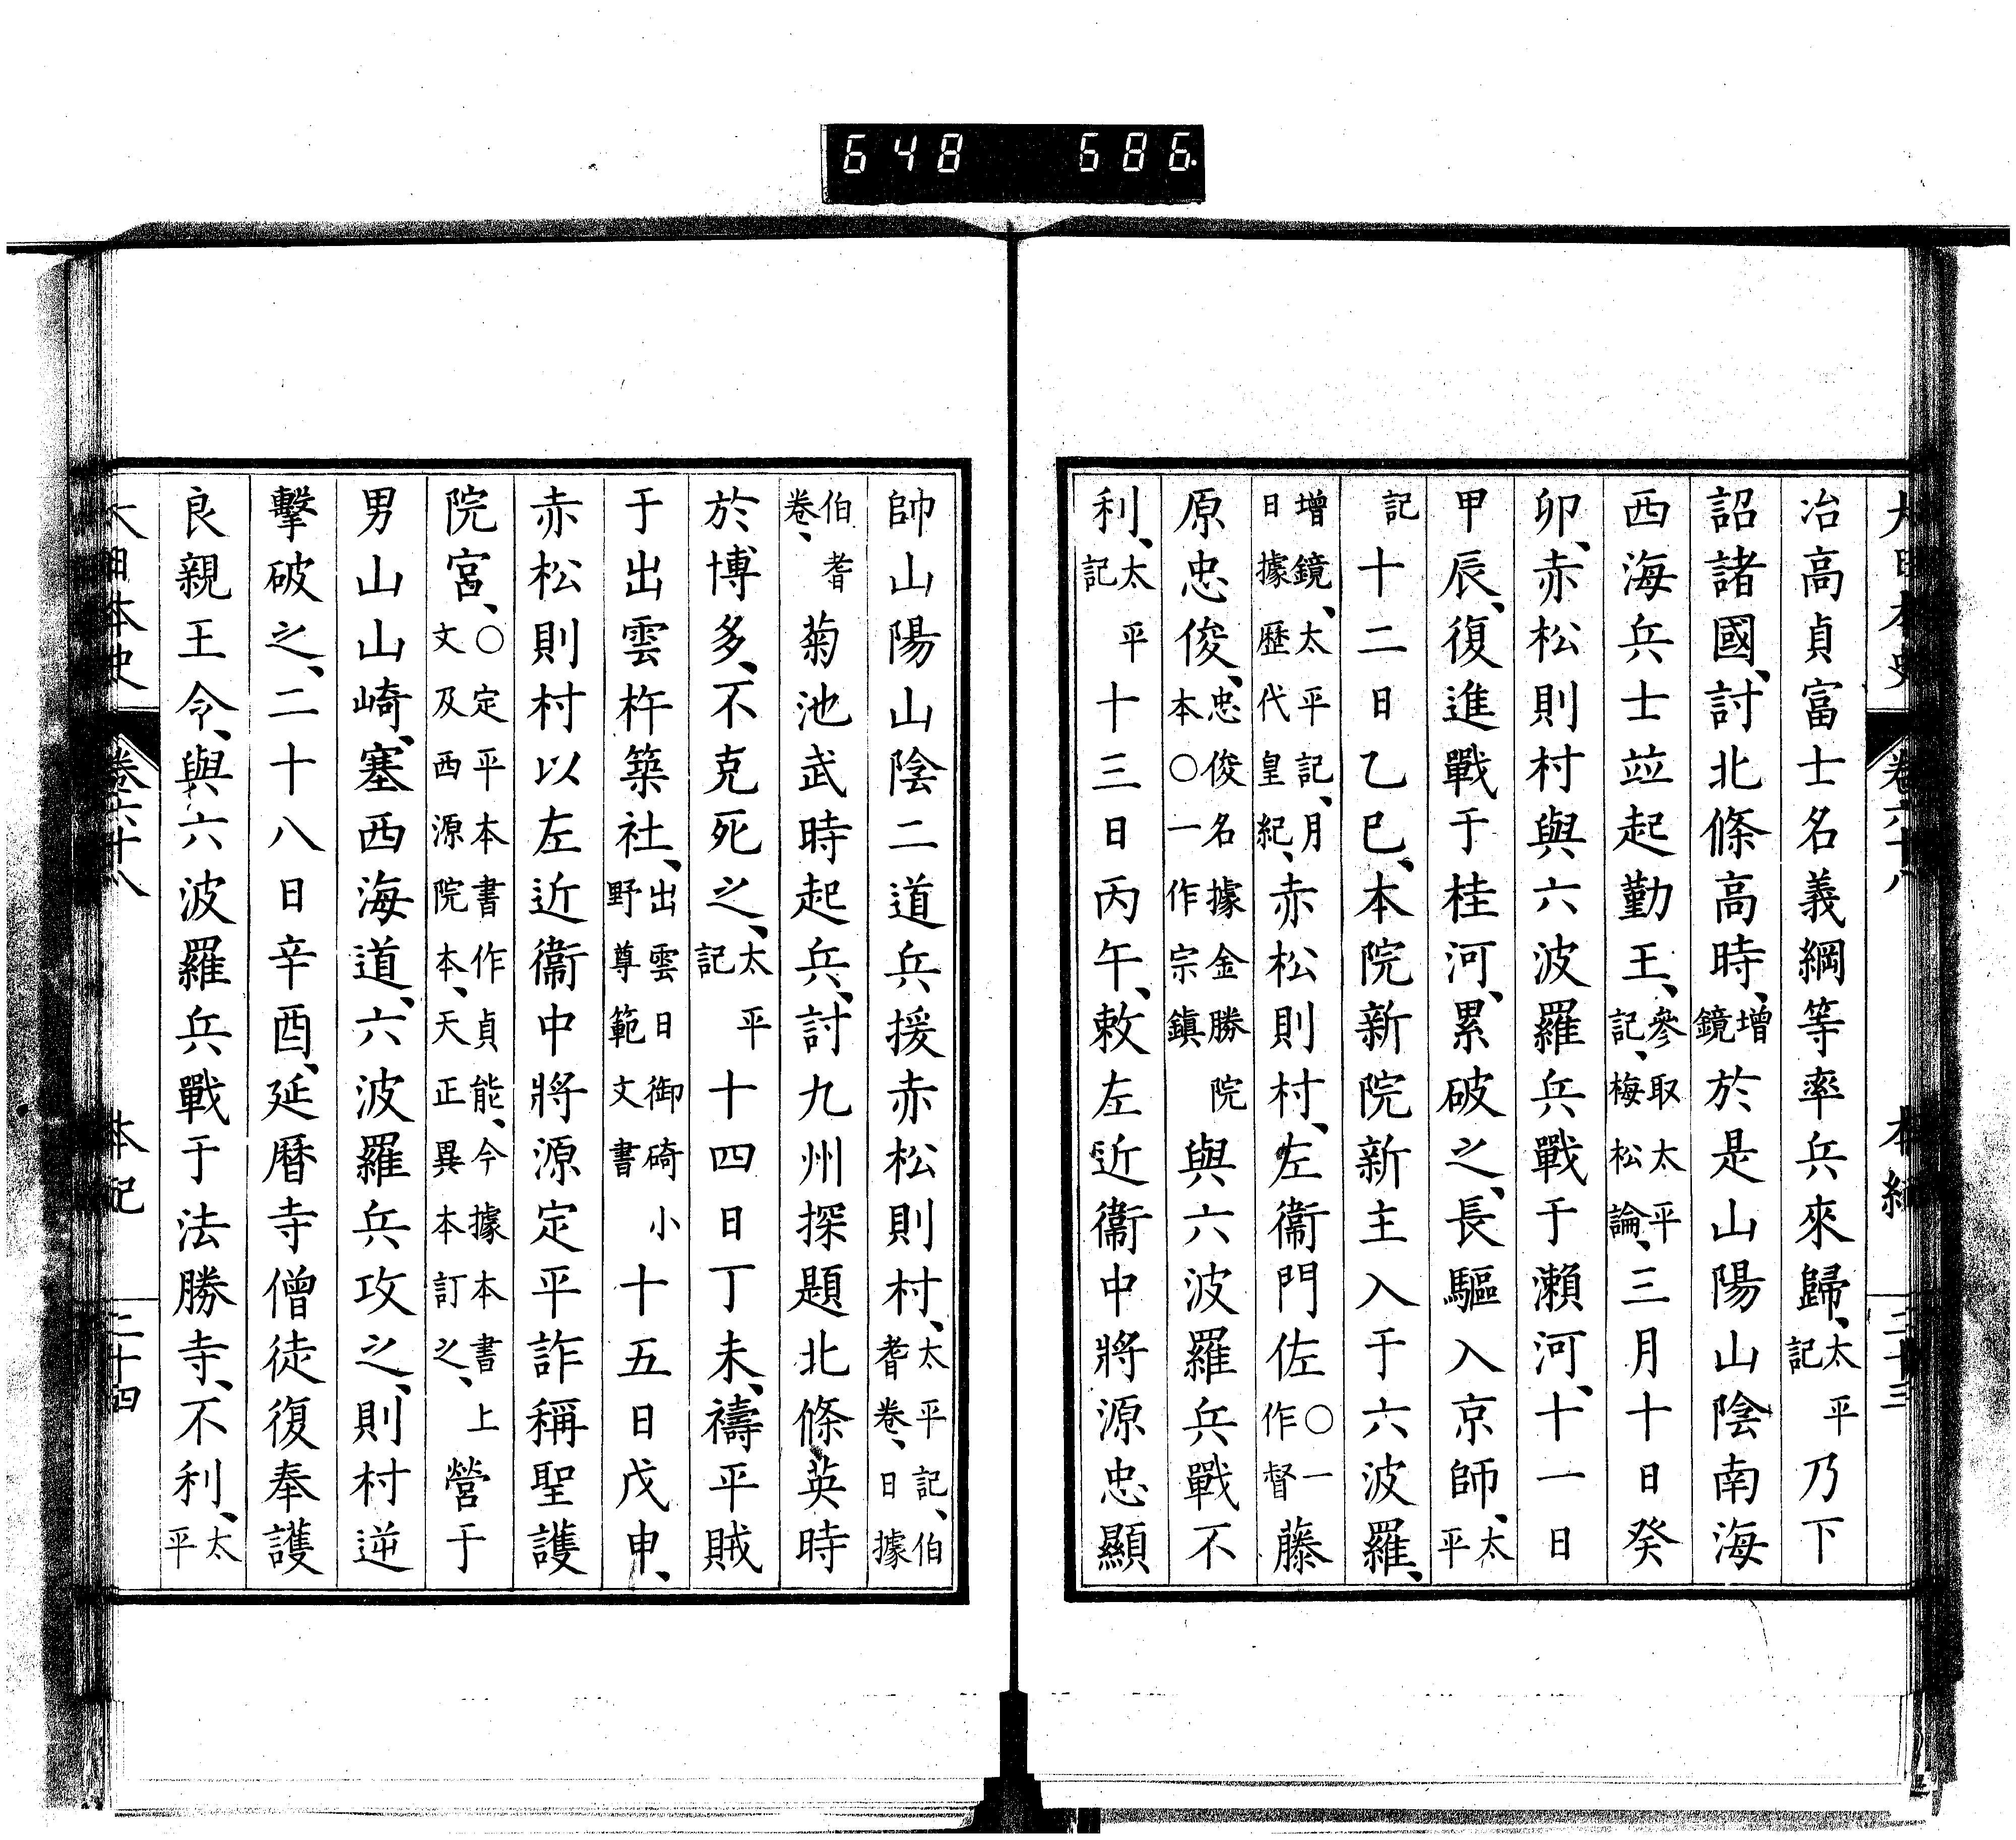 648 686.
大日本史 卷六十八 本紀 二十三
冶高貞富士名義綱等率兵來歸、太平記乃下
詔諸國、討北條高時、增鏡於是山陽山陰南海
西海兵士竝起勤王、參取太平記、梅松論、三月十日癸
卯、赤松則村與六波羅兵戰于瀨河、十一日
甲辰、復進戰于桂河、累破之、長驅入京師、太平
記十二日乙巳、本院新院新主入于六波羅、
增鏡、太平記、月日據歷代皇紀、赤松則村、左衞門佐○一作督藤
原忠俊、忠俊名據金勝院本○一作宗鎭與六波羅兵戰不
利、太平記十三日丙午、敕左近衞中將源忠顯
帥山陽山陰二道兵援赤松則村、太平記、伯耆卷、日據
伯耆卷、菊池武時起兵、討九州探題北條英時
於博多、不克死之、太平記十四日丁未、禱平賊
于出雲杵築社、出雲日御碕小野尊範文書十五日戊申、
赤松則村以左近衞中將源定平詐稱聖護
院宮、○定平本書作貞能、今據本書上文及西源院本、天正異本訂之、營于
男山山崎、塞西海道、六波羅兵攻之、則村逆
擊破之、二十八日辛酉、延曆寺僧徒復奉護
良親王令、與六波羅兵戰于法勝寺、不利、太平
大日本史 卷六十八 本紀 二十四